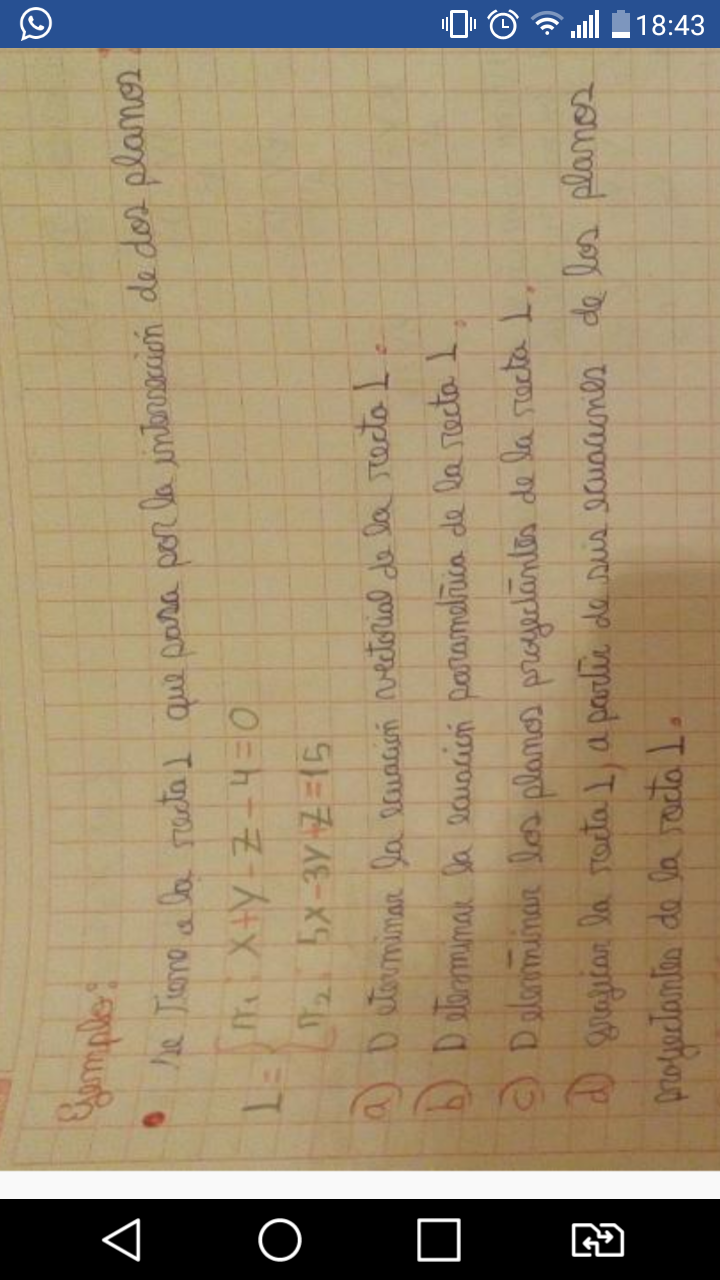 18:43
Ejemplo:
• Se Tiene a la recta L que pasa por la intersección de dos planos.
L = { π1: X+Y-Z-4=0
π2: 5X-3Y+Z=15
a) Determinar la ecuación vectorial de la recta L.
b) Determinar la ecuación parametrica de la recta L.
c) Determinar los planos proyectantes de la recta L.
d) graficar la recta L, a partir de sus ecuaciones de los planos
proyectantes de la recta L.